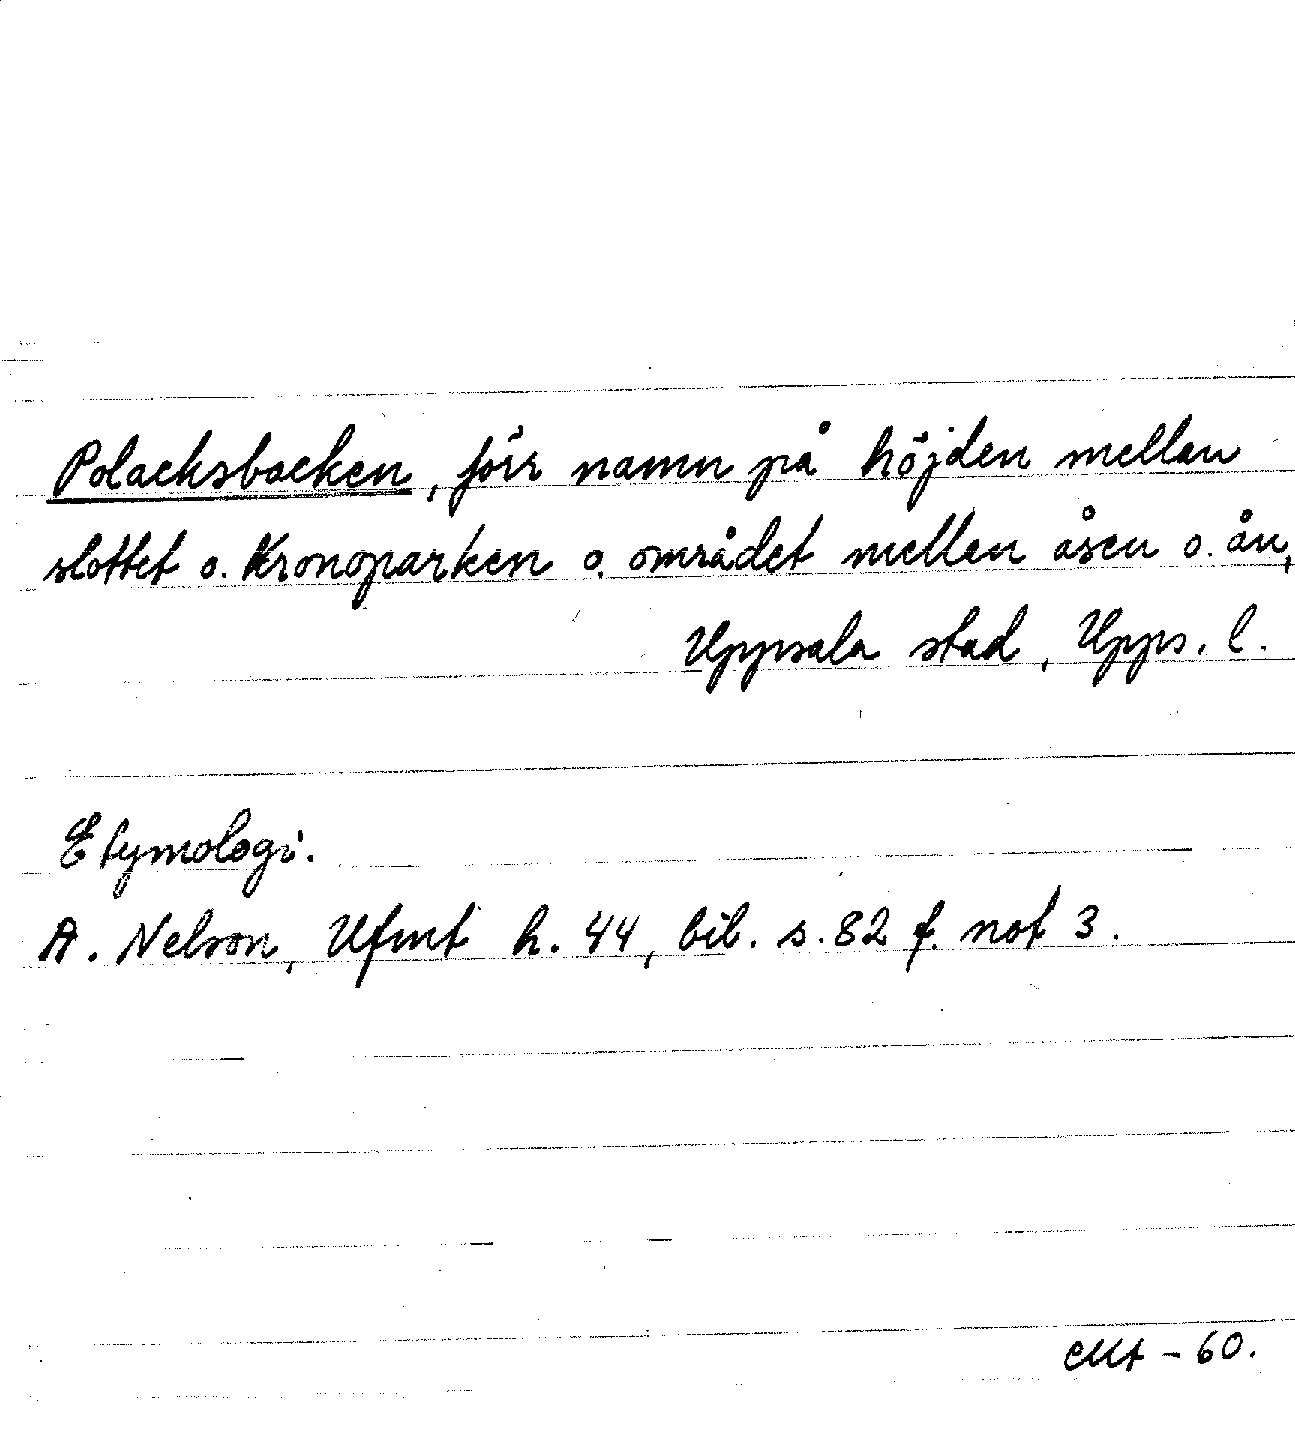 Polacksbacken, förr namn på höjden mellan
slottet o. Kronoparken o. området mellan åsen o. ån,
Uppsala stad, Upps. l.
Etymologi.
A. Nelson, Ufmt h. 44, bil. s. 82 f. not 3.
- 60.